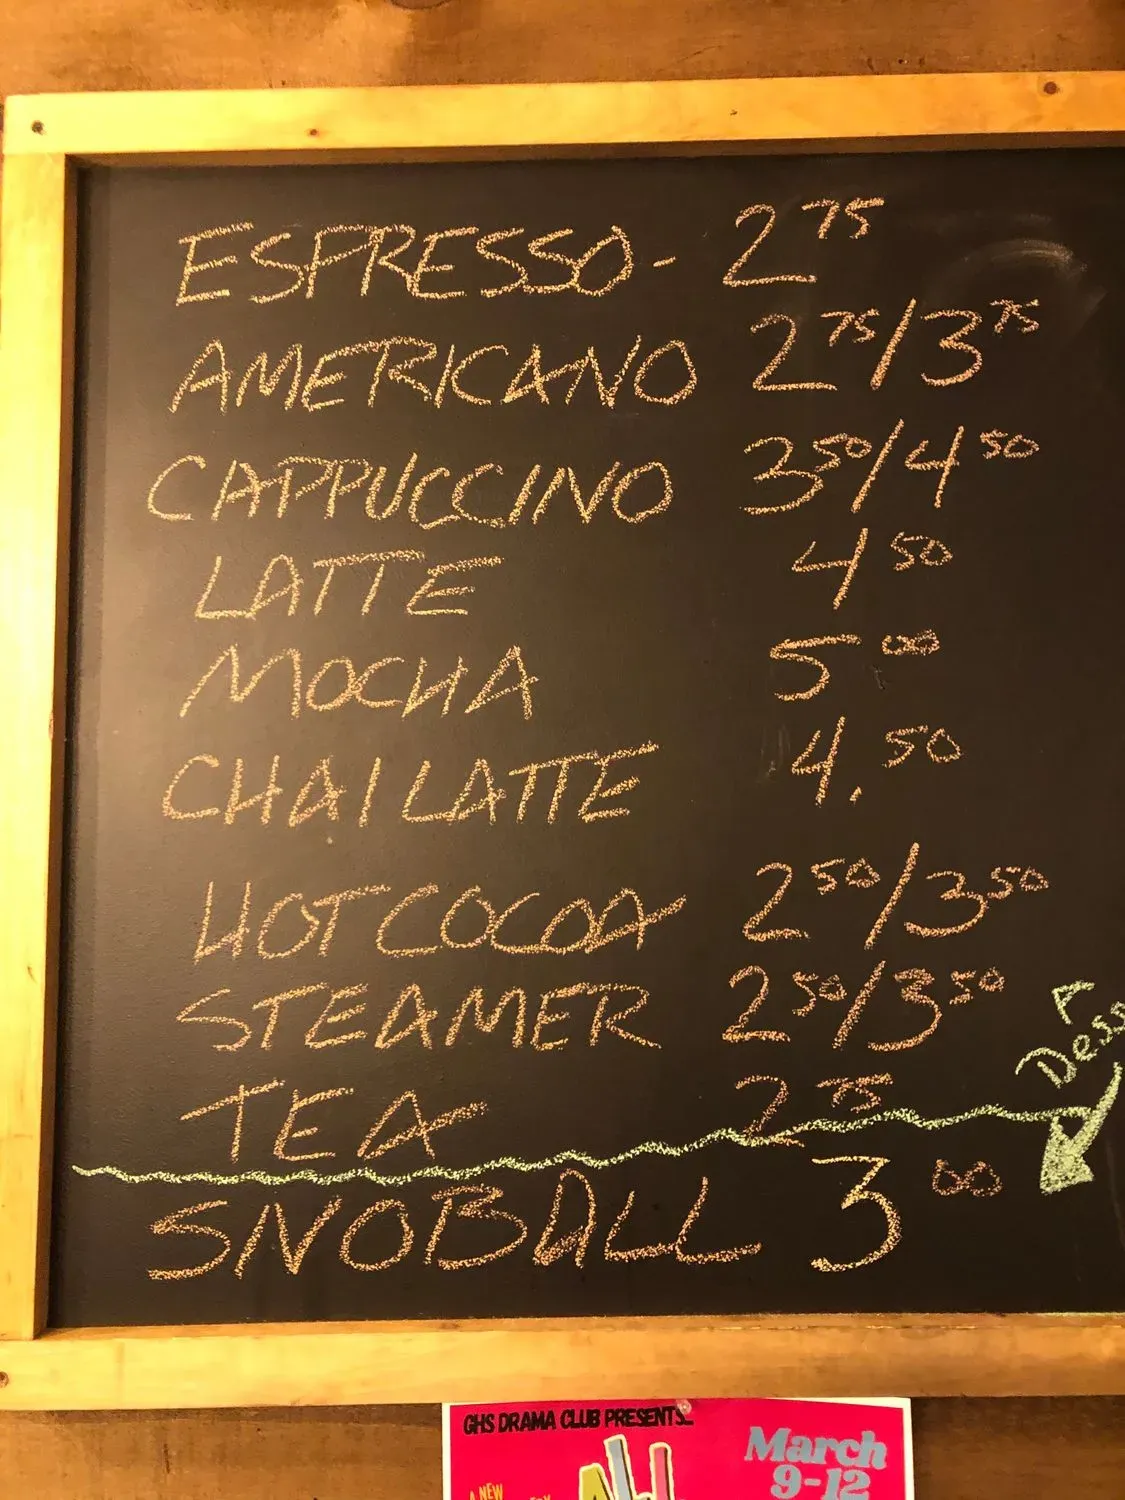 ESPRESSO - 2 75
AMERICANO 2 75/3 75
CAPPUCCINO 3 50/4 50
LATTE 4 50
MOCHA 5 00
CHAI LATTE 4. 50
HOT COCOA 2 50/3 50
STEAMER 2 50/3 50
TEA 2 75
A
SNOBALL 3 00
GHS DRAMA CLUB PRESENTS...
March
9-12
A NEW